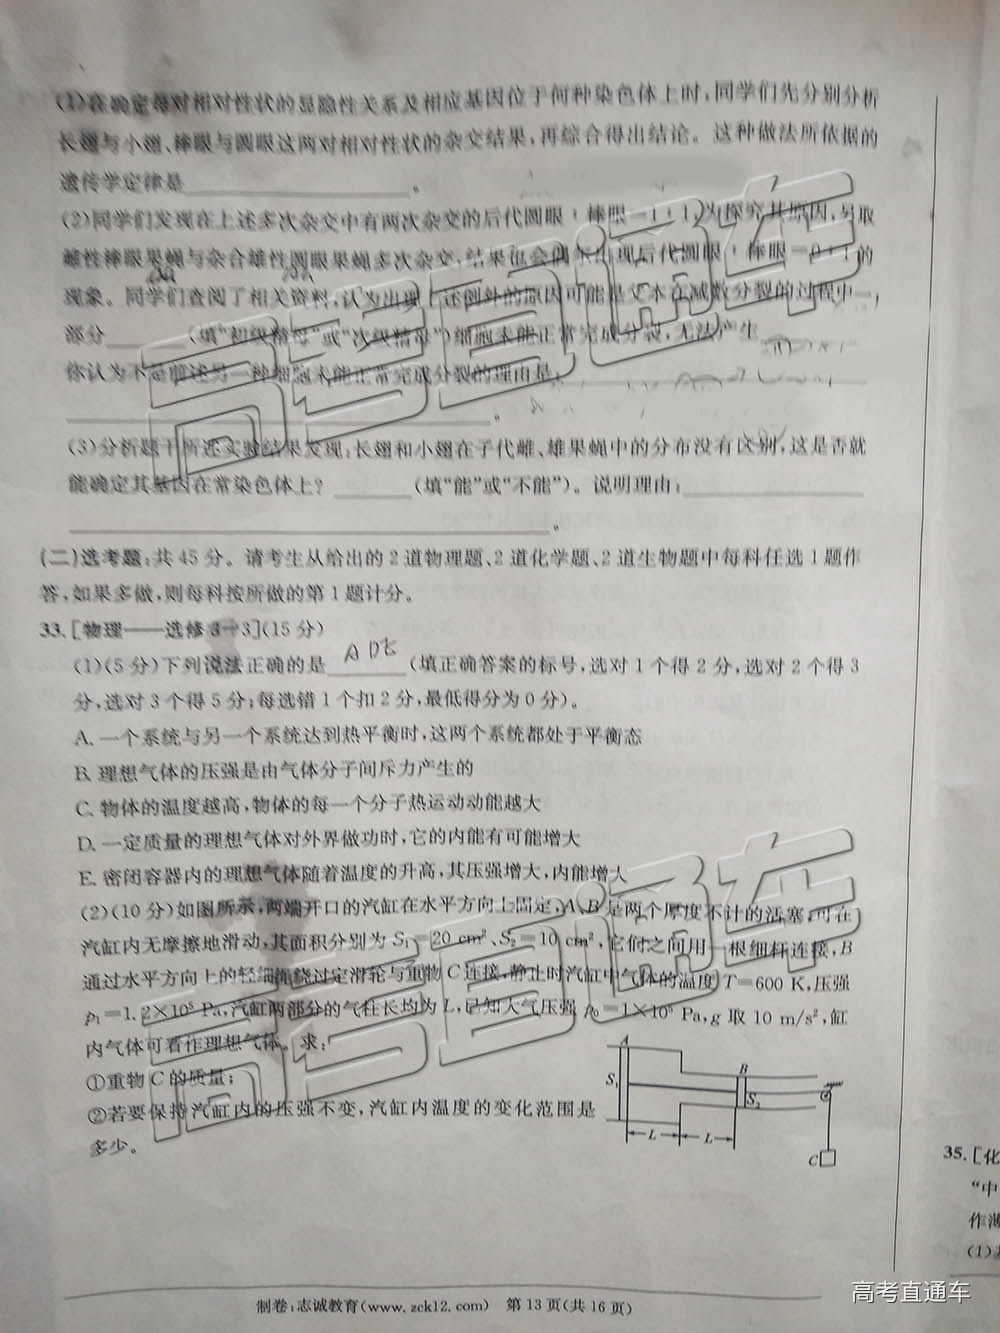 (1)在确定每对相对性状的显隐性关系及相应基因位于何种染色体上时,同学们先分别分析
长翅与小翅、棒眼与圆眼这两对相对性状的杂交结果,再综合得出结论。这种做法所依据的
遗传学定律是____________。
(2)同学们发现在上述多次杂交中有两次杂交的后代圆眼∶棒眼=1∶1,为探究其原因,另取
雌性棒眼果蝇与杂合雄性圆眼果蝇多次杂交,结果也会偶尔出现后代圆眼∶棒眼=0∶1的
现象。同学们查阅了相关资料,认为出现上述例外的原因可能是父本在减数分裂的过程中一
部分______(填“初级精母”或“次级精母”)细胞未能正常完成分裂,无法产生______
你认为不是前述另一种细胞未能正常完成分裂的理由是:____________
____________。
(3)分析题干所述实验结果发现:长翅和小翅在子代雌、雄果蝇中的分布没有区别,这是否就
能确定其基因在常染色体上?______(填“能”或“不能”)。说明理由:____________
____________。
(二)选考题:共45分。请考生从给出的2道物理题、2道化学题、2道生物题中每科任选1题作
答,如果多做,则每科按所做的第1题计分。
33.[物理——选修3-3](15分)
(1)(5分)下列说法正确的是 ADE (填正确答案的标号,选对1个得2分,选对2个得3
分,选对3个得5分;每选错1个扣2分,最低得分为0分)。
A. 一个系统与另一个系统达到热平衡时,这两个系统都处于平衡态
B. 理想气体的压强是由气体分子间斥力产生的
C. 物体的温度越高,物体的每一个分子热运动动能越大
D. 一定质量的理想气体对外界做功时,它的内能有可能增大
E. 密闭容器内的理想气体随着温度的升高,其压强增大,内能增大
(2)(10分)如图所示,两端开口的汽缸在水平方向上固定,A、B是两个厚度不计的活塞,可在
汽缸内无摩擦地滑动,其面积分别为S₁=20 cm²、S₂=10 cm²,它们之间用一根细杆连接,B
通过水平方向上的轻细绳绕过定滑轮与重物C连接,静止时汽缸中气体的温度T=600 K,压强
p₁=1.2×10⁵ Pa,汽缸两部分的气柱长均为L,已知大气压强p₀=1×10⁵ Pa,g取10 m/s²,缸
内气体可看作理想气体。求:
①重物C的质量;
②若要保持汽缸内的压强不变,汽缸内温度的变化范围是
多少。
A
B
S₁
S₂
L
L
C
35.[化
“中
作薄
(1)
制卷:志诚教育(www.zck12.com) 第13页(共16页)
高考直通车
高考直通车
高考直通车